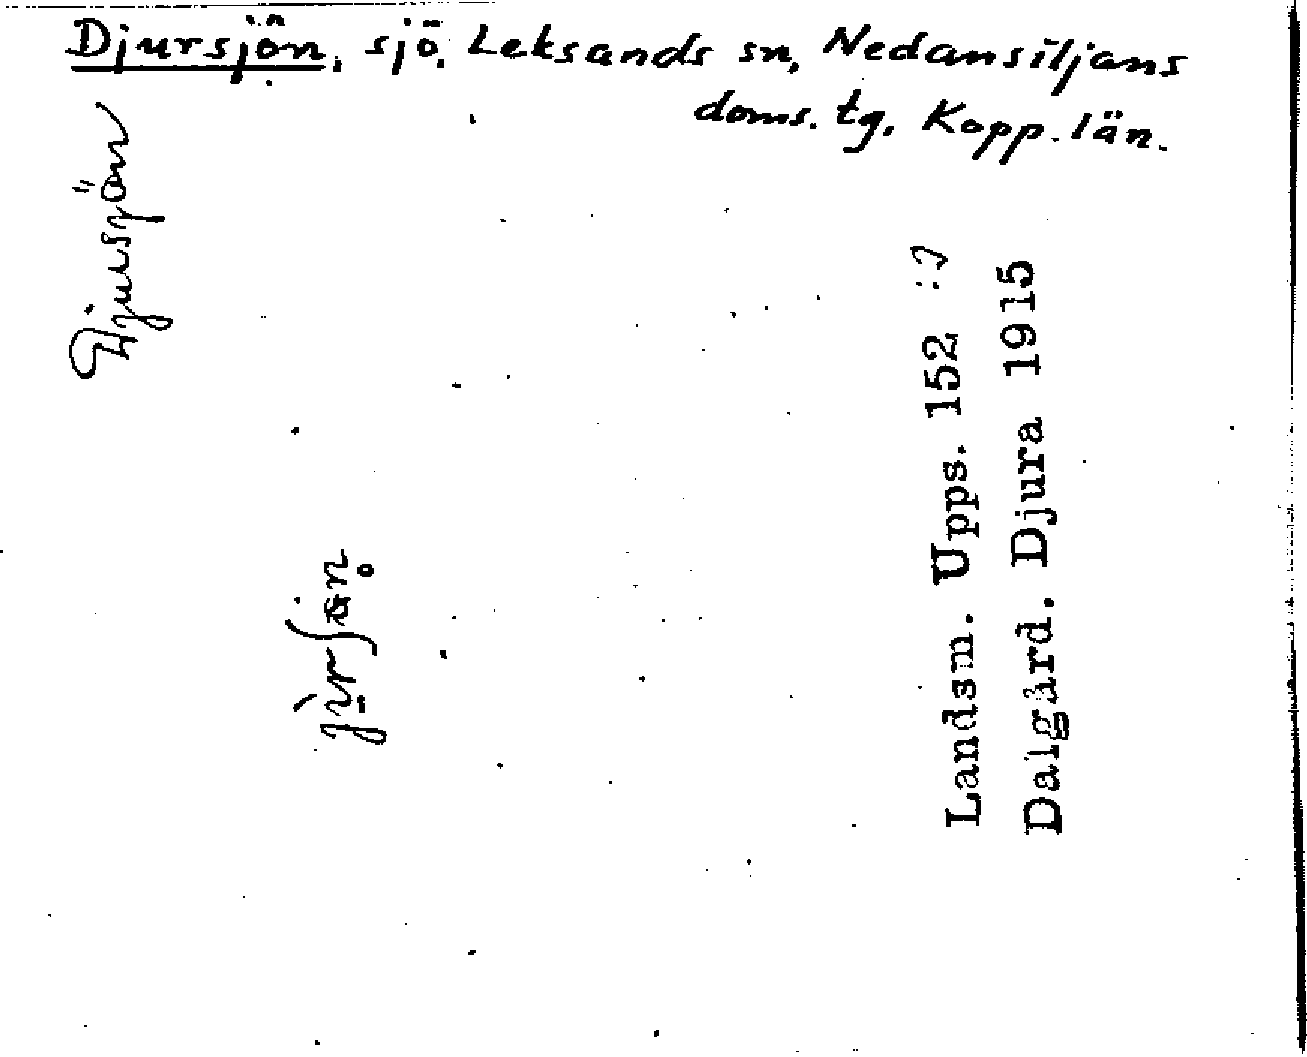 Djursjön, sjö, Leksands sn, Nedansiljans
doms. tg, Kopp. län.
Djursjön
Landsm. Upps. 152 :
Dalgård. Djura 1915